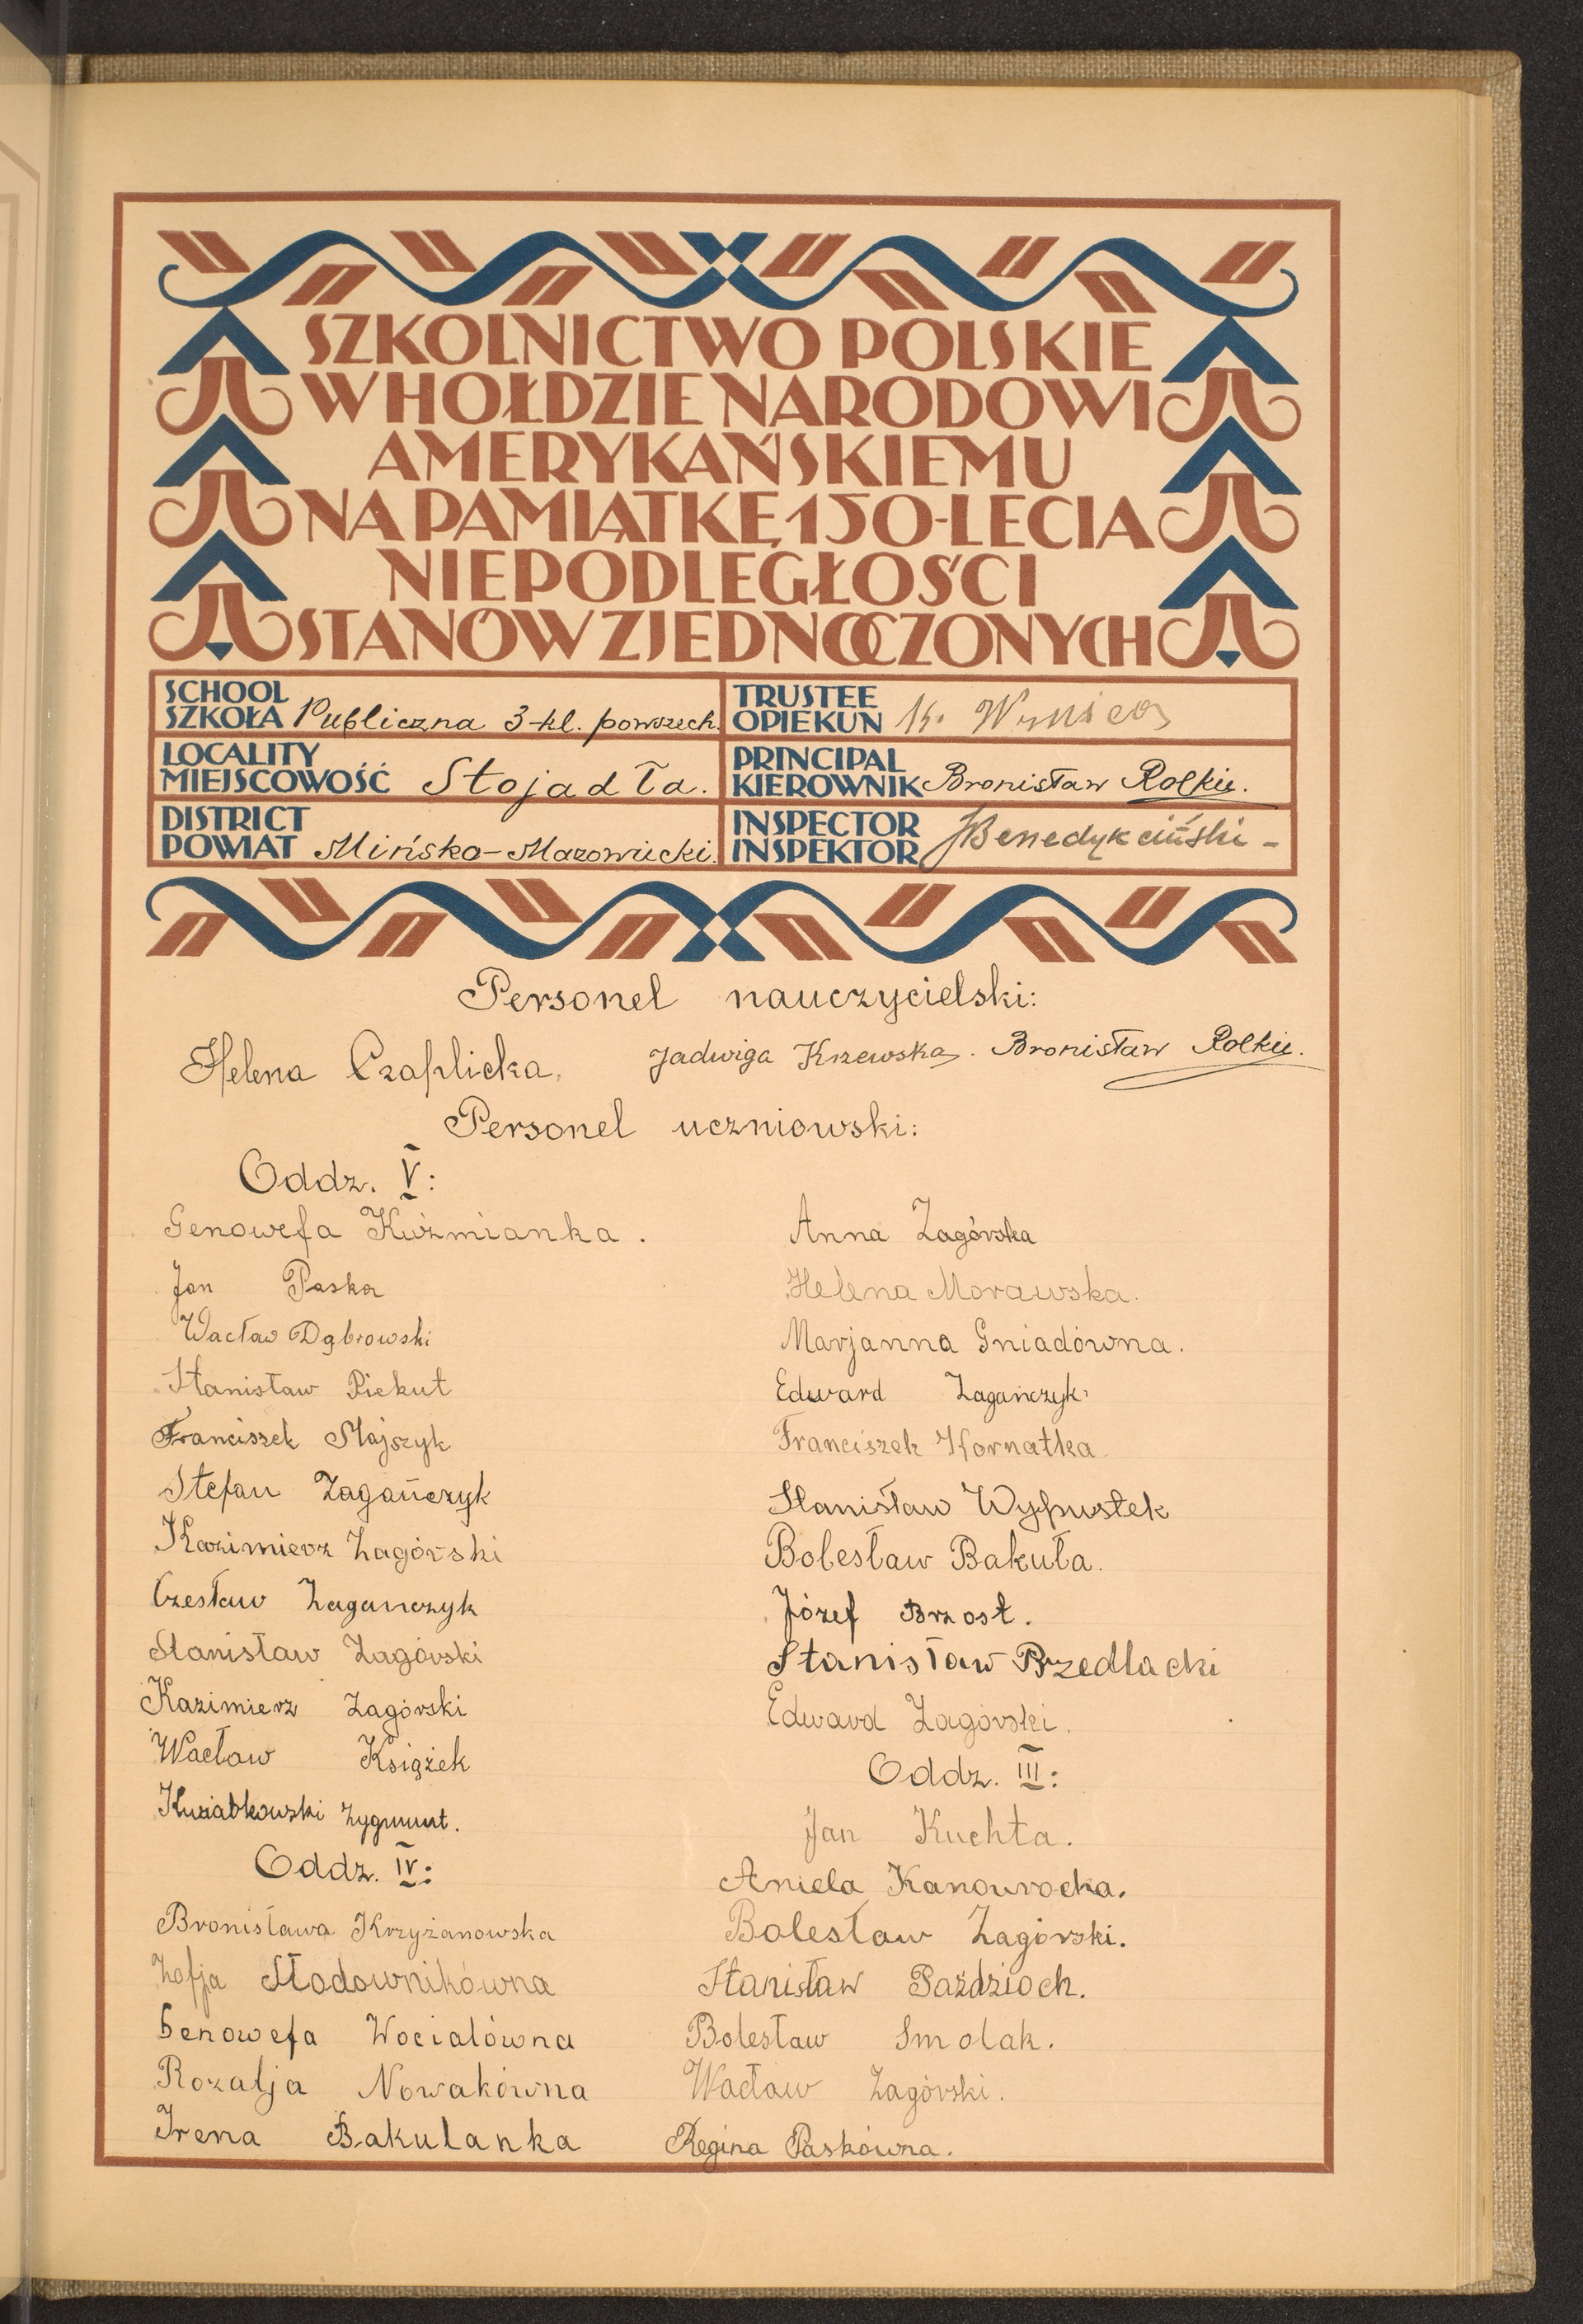 SZKOLNICTWO POLSKIE
W HOŁDZIE NARODOWI
AMERYKAŃSKIEMU
NA PAMIĄTKĘ 150-LECIA
NIEPODLEGŁOŚCI
STANÓW ZJEDNOCZONYCH
SCHOOL
SZKOŁA Publiczna 3-kl. powszech.
LOCALITY
MIEJSCOWOŚĆ Stojadła.
DISTRICT
POWIAT Mińsko-Mazowiecki.
TRUSTEE
OPIEKUN
PRINCIPAL
KIEROWNIK Bronisław Rolkie.
INSPECTOR
INSPEKTOR Benedykciński -
Personel nauczycielski:
Helena Czaplicka. Jadwiga Krzewska. Bronisław Rolkie.
Personel uczniowski:
Oddz. V:
Genowefa Kuźmianka.
Jan Paska
Wacław Dąbrowski
Stanisław Piekut
Franciszek Stajszyk
Stefan Zagańczyk
Kazimierz Zagórski
Czesław Zagańczyk
Stanisław Zagórski
Kazimierz Zagórski
Wacław Książek
Zygmunt.
Oddz. IV:
Bronisława Krzyżanowska
Zofja Słodownikówna
Genowefa Wocialówna
Rozalja Nowakówna
Irena Bakulanka
Anna Zagórska
Helena Morawska.
Marjanna Gniadówna.
Edward Zagańczyk
Franciszek Kornatka
Stanisław Wypustek
Bolesław Bakuła.
Józef Brzost.
Stanisław Przedlacki
Edward Zagórski.
Oddz. III:
Jan Kuchta.
Aniela Kanowrocka.
Bolesław Zagórski.
Stanisław Paździoch.
Bolesław Smolak.
Wacław Zagórski.
Regina Paskówna.